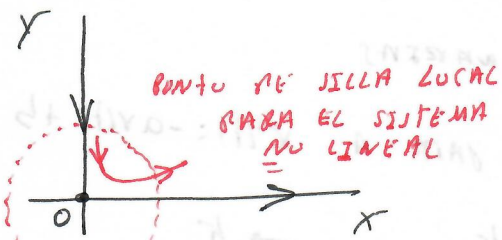 Y
PUNTO DE SILLA LOCAL
PARA EL SISTEMA
NO LINEAL
O
X